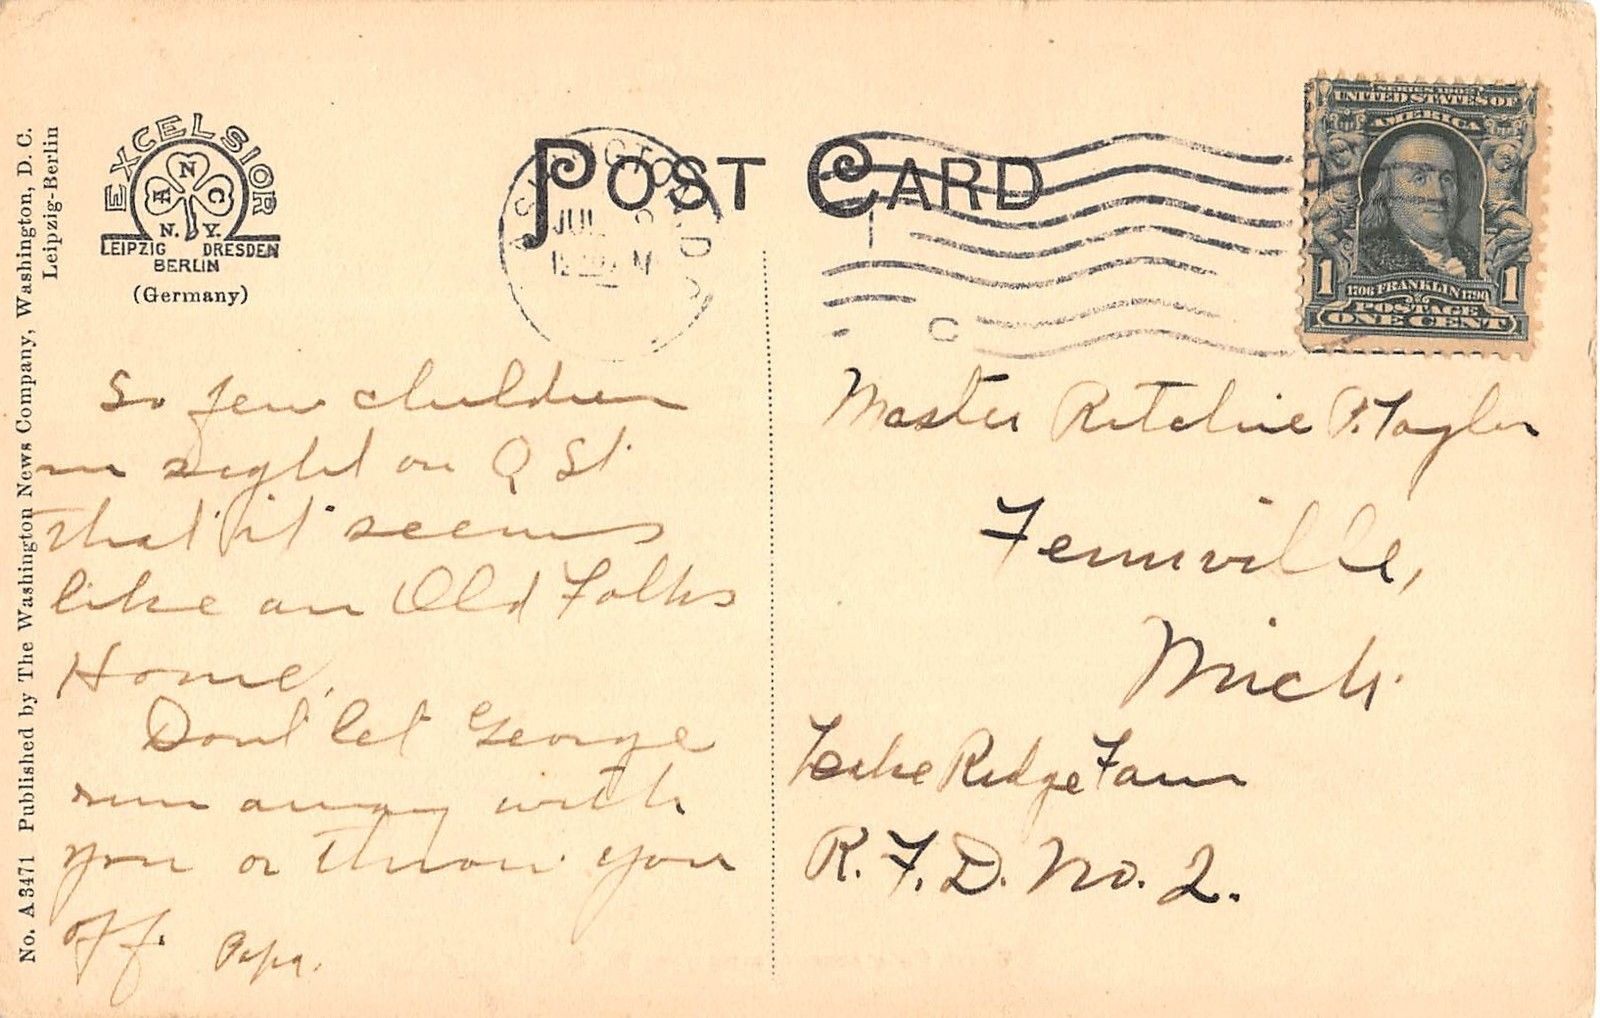 No. A 3471 Published by The Washington News Company, Washington, D. C.
Leipzig-Berlin
EXCELSIOR
A N C
N. Y.
LEIPZIG DRESDEN
BERLIN
(Germany)
POST CARD
JUL
SERIES 1902
UNITED STATES OF
AMERICA
1706 FRANKLIN 1790
1 1
POSTAGE
ONE CENT
C
So few children
in sight on Q St.
that it seems
like an Old Folks
Home.
Dont let George
run away with
you or throw you
off. Papa.
Master Ritchie P. Taylor
Fennville,
Mich.
Lake Ridge Farm
R. F. D. No. 2.